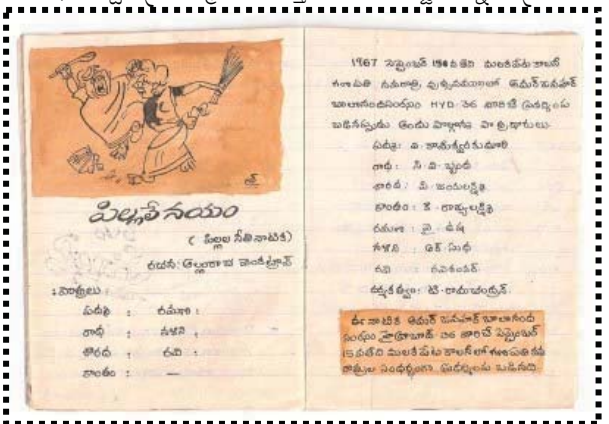 పిల్లలే నయం
( పిల్లల నీతి నాటిక)
రచన: అల్లంరాజు వెంకట్రావ్
: పాత్రలు :
పద్మశ్రీ : రమణ :
రాధ : నళిని :
శారద : రవి :
కాంతం : —
1967 సెప్టెంబర్ 15వ తేది మలకపేట కాలనీ
గణపతి నవరాత్రి ఉత్సవములలో అమర్ జవహర్
బాలానందసంఘం HYD-36 వారిచే ప్రదర్శింప
బడినప్పుడు అందు పాల్గొన్న పాత్రధారులు
పద్మశ్రీ: వి. కామేశ్వరీకుమారి
రాధ: సి. వి. బృంద
శారద: వి. జయలక్ష్మి
కాంతం: కె. రాజ్యలక్ష్మి
రమణ: వై. ఉష
నళిని: ఆర్. సుధ
రవి: రవిశంకర్
దర్శకత్వం: టి. రామచంద్రన్
ఈ నాటిక అమర్ జవహర్ బాలానంద
సంఘం హైద్రాబాద్ 36 వారిచే సెప్టెంబర్
15 వతేది మలకపేట కాలనీలో గణపతి నవ
రాత్రుల సందర్భంగా ప్రదర్శింప బడినది